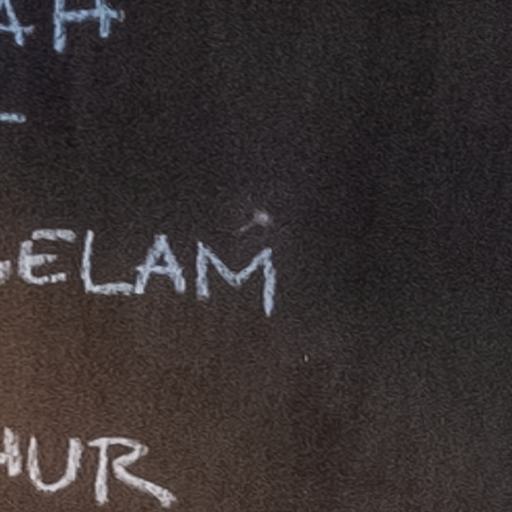 AH
-
ELAM
HUR